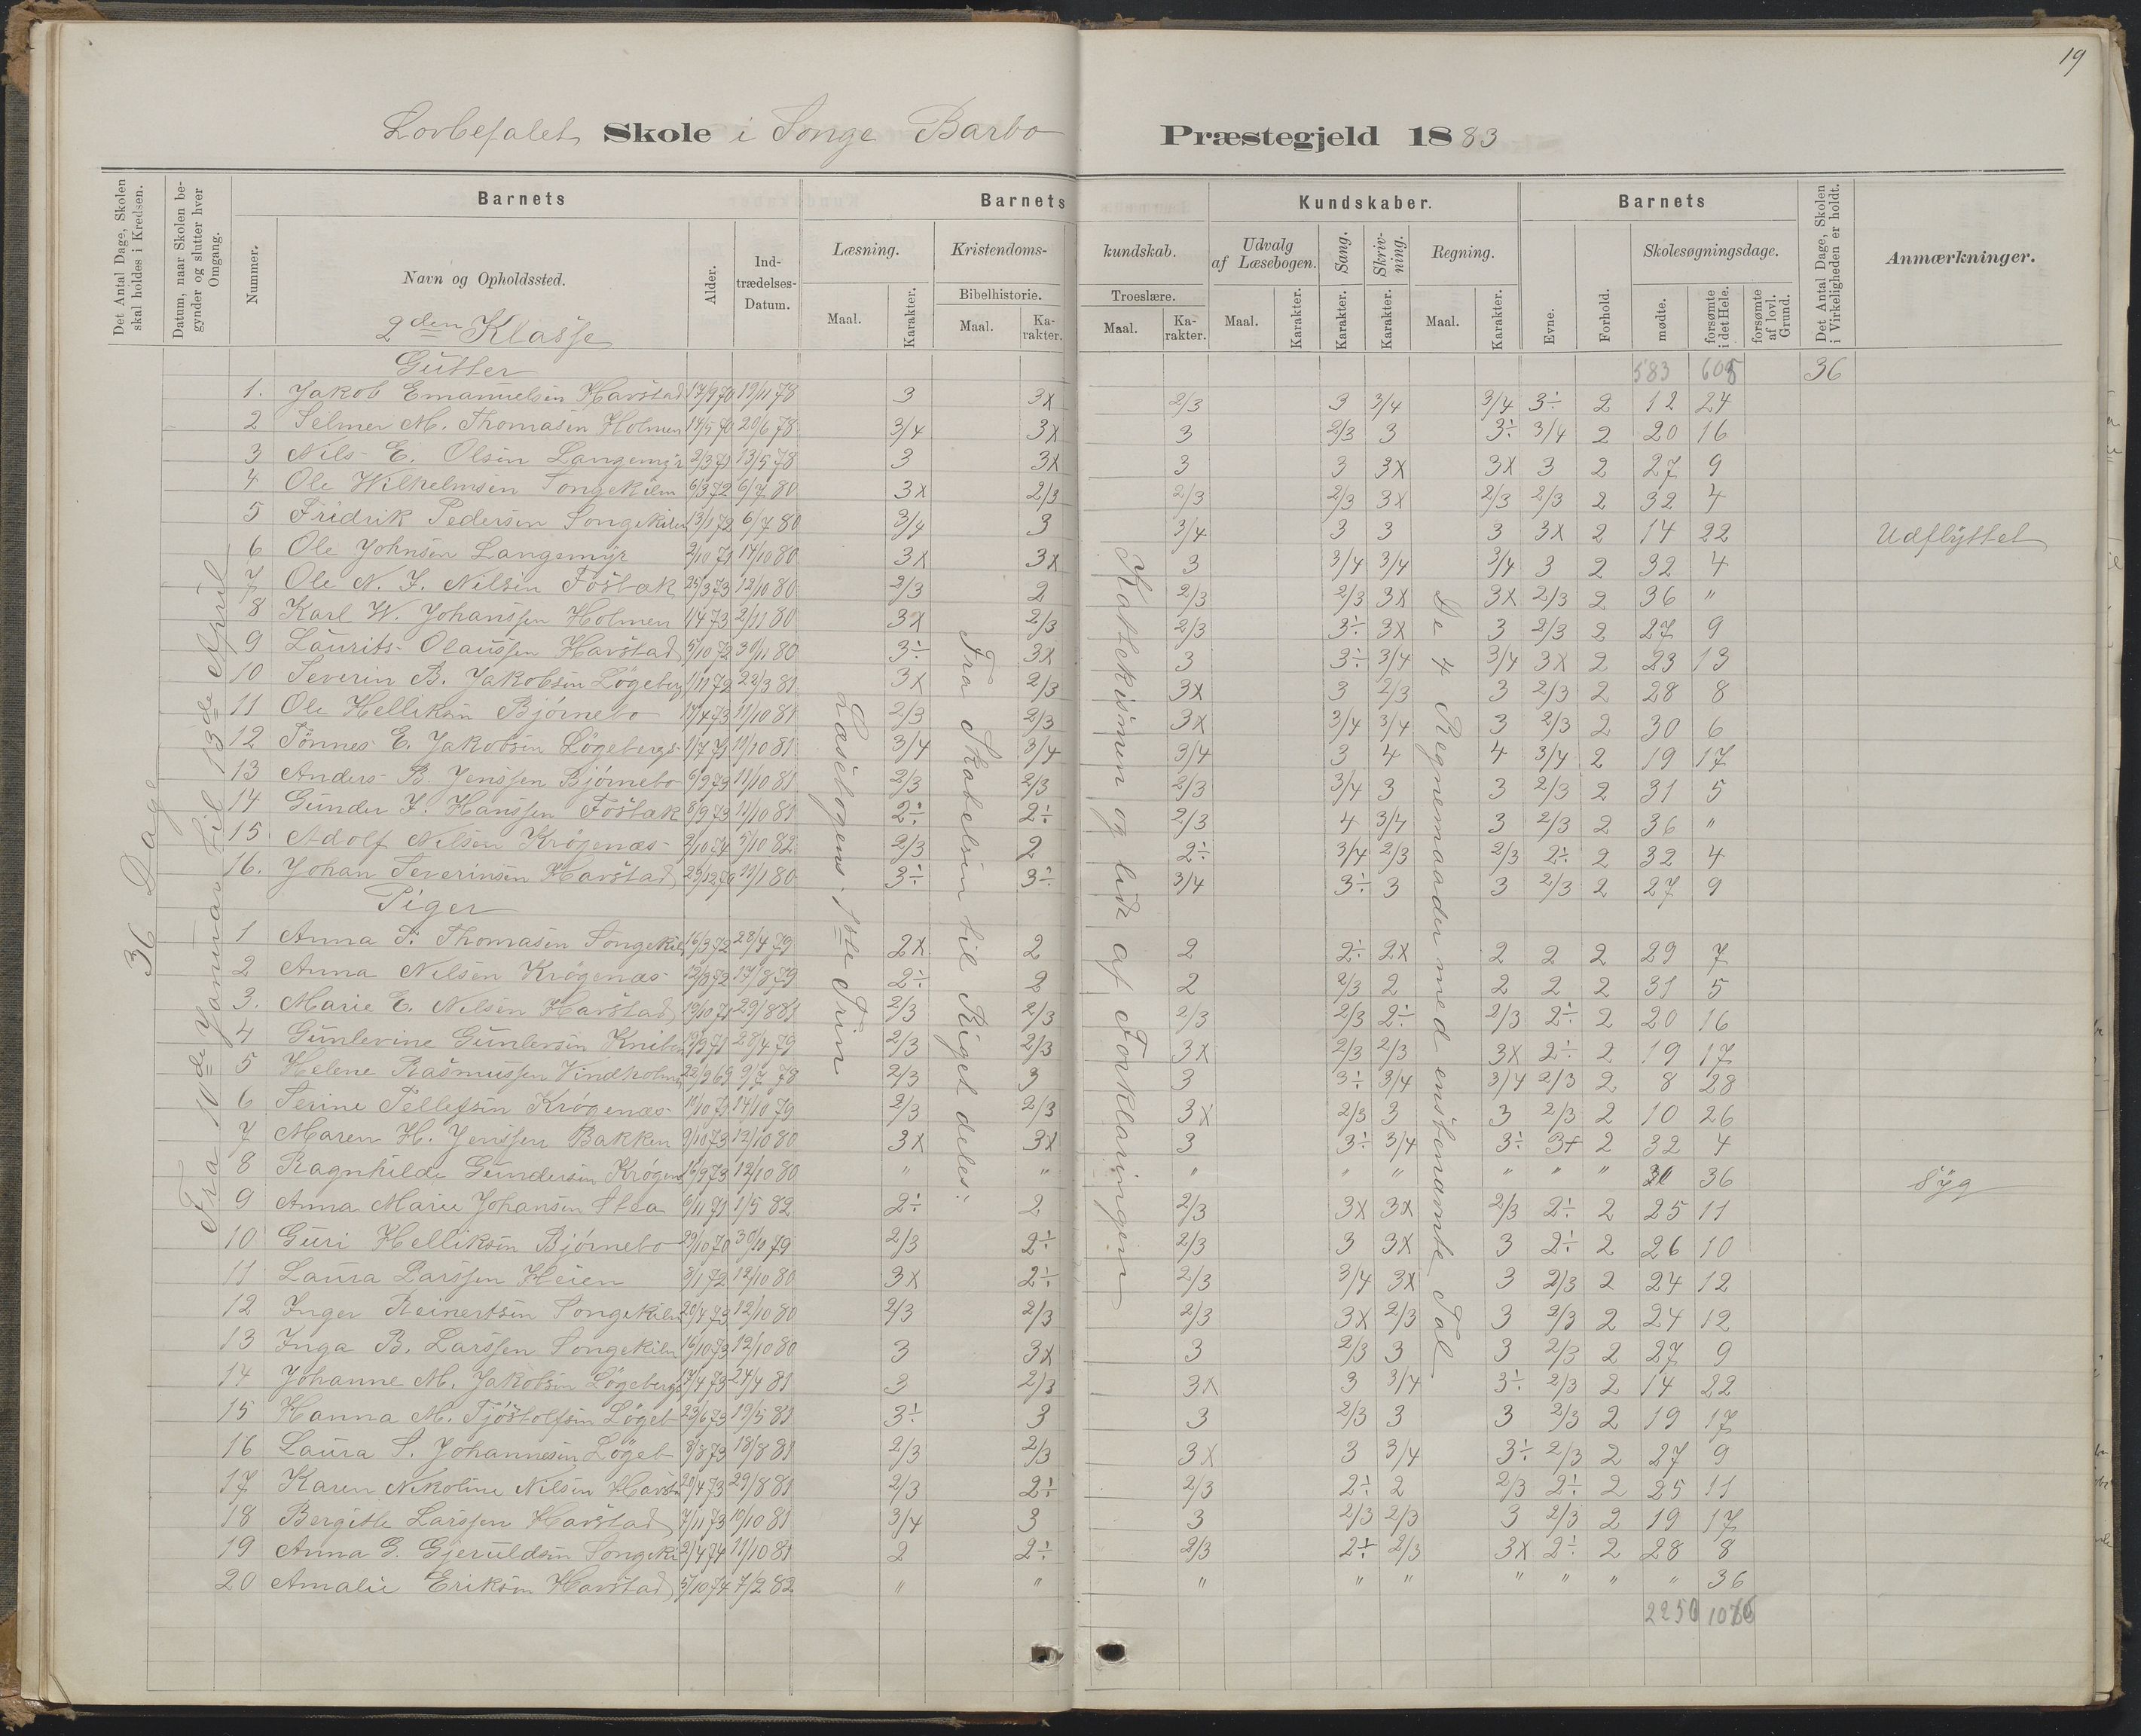 19
Lovbefalet Skole i Songe Barbo Præstegjeld 1883
Det Antal Dage, Skolen skal holdes i Kredsen.
Datum, naar Skolen begynder og slutter hver Omgang.
Barnets
Nummer.
Navn og Opholdssted.
Alder.
Indtrædelses-Datum.
Barnets Kundskaber.
Læsning.
Maal.
Karakter.
Kristendomskundskab.
Bibelhistorie.
Maal.
Karakter.
Troeslære.
Maal.
Karakter.
Udvalg af Læsebogen.
Maal.
Karakter.
Sang.
Karakter.
Skrivning.
Karakter.
Regning.
Maal.
Karakter.
Barnets
Evne.
Forhold.
Skolesøgningsdage.
mødte.
forsømte i det Hele.
forsømte af lovl. Grund.
Det Antal Dage, Skolen i Virkeligheden er holdt.
Anmærkninger.
36 Dage
Fra 10de Januar til 13de April
Læsebogens 1ste Trin
Fra Skabelsen til Riget deles.
Katekismen og lidt af Forklaringen
De 4 Regnemaader med ensbenævnte Tal
2den Klasse
Gutter 583 36
1. Jakob Emanuelsen Havstad 17/9 70 19/11 78 3 3x 2/3 3 3/4 3/4 3÷ 2 12 24
2 Selmer M. Thomasen Holmen 14/5 70 20/6 78 3/4 3x 3 2/3 3 3÷ 3/4 2 20 16
3 Nils E. Olsen Langemyr 2/3 71 13/5 78 3 3x 3 3 3x 3x 3 2 27 9
4 Ole Wilhelmsen Songekilen 6/3 72 6/7 80 3x 2/3 2/3 2/3 3x 2/3 2/3 2 32 4
5 Fridrik Pedersen Songekilen 13/1 72 6/7 80 3/4 3 3/4 3 3 3 3x 2 14 22 Udflyttet
6 Ole Johnsen Langemyr 2/10 71 14/10 80 3x 3x 3 3/4 3/4 3/4 3 2 32 4
7 Ole N. F. Nilsen Fostak 25/3 73 12/10 80 2/3 2 2/3 2/3 3x 3x 2/3 2 36 "
8 Karl W. Johanssen Holmen 1/4 73 2/11 80 3x 2/3 2/3 3÷ 3x 3 2/3 2 27 9
9 Laurits Olaussen Havstad 5/10 72 30/11 80 3÷ 3x 3 3÷ 3/4 3/4 3x 2 23 13
10 Severin B. Jakobsen Løgeberg 1/11 72 22/3 81 3x 2/3 3x 3 2/3 3 2/3 2 28 8
11 Ole Helliksen Bjørnebo 17/4 73 11/10 81 2/3 2/3 3x 3/4 3/4 3 2/3 2 30 6
12 Tönnes E. Jakobsen Løgeberg 1/7 71 11/10 81 3/4 3/4 3/4 3 4 4 3/4 2 19 17
13 Anders B. Jenssen Bjørnebo 6/9 73 11/10 81 2/3 2/3 2/3 3/4 3 3 2/3 2 31 5
14 Gunder F. Hanssen Fostak 8/9 73 11/10 81 2÷ 2÷ 2/3 4 3/4 3 2/3 2 36 "
15 Adolf Nilsen Krøgenæs 2/10 74 5/10 82 2/3 2 2÷ 3/4 2/3 2/3 2÷ 2 32 4
16. Johan Severinsen Havstad 29/12 70 12/1 80 3÷ 3÷ 3/4 3÷ 3 3 2/3 2 27 9
Piger
1 Anna S. Thomasen Songekil 16/3 72 28/4 79 2x 2 2 2÷ 2x 2 2 2 29 7
2 Anna Nilsen Krøgenæs 12/3 72 17/8 79 2÷ 2 2 2/3 2 2 2 2 31 5
3. Marie E. Nilsen Havstad 19/10 71 29/8 81 2/3 2/3 2/3 2/3 2÷ 2/3 2÷ 2 20 16
4 Gunlevine Gunlevsen 28/4 79 2/3 2/3 3x 2/3 2/3 3x 2÷ 2 19 17
5 Helene Rasmussen Vindholmen 22/9 69 9/7 78 2/3 3 3 3÷ 3/4 3/4 2/3 2 8 28
6 Serine Tellefsen Krøgenæs 11/10 73 14/10 79 2/3 2/3 3x 2/3 3 3 2/3 2 10 26
7 Maren H. Jenssen Bakken 9/10 73 12/10 80 3x 3x 3 3÷ 3/4 3÷ 3+ 2 32 4
8 Ragnhilde Gundersen Krøgenæs 16/9 73 12/10 80 " " " " " " " " 36 Syg
9 Anna Marie Johansen Stea 6/11 71 1/5 82 2÷ 2 2/3 3x 3x 2/3 2÷ 2 25 11
10 Guri Helliksen Bjørnebo 29/10 70 30/10 79 2/3 2÷ 2/3 3 3x 3 2÷ 2 26 10
11 Laura Larssen Heien 8/1 72 12/10 80 3x 2÷ 2/3 3/4 3x 3 2/3 2 24 12
12 Inger Reinertsen Songekilen 20/4 73 12/10 80 2/3 2/3 2/3 3x 2/3 3 2/3 2 24 12
13 Inga B. Larssen Songekilen 16/10 73 12/10 80 3 3x 3 2/3 3 3 2/3 2 27 9
14 Johanne M. Jakobsen Løgeberg 17/4 73 24/4 81 3 2/3 3x 3 3/4 3÷ 2/3 2 14 22
15 Hanna M. Tjöstolfsen Løgeb 23/6 73 19/5 81 3÷ 3 3 2/3 3 3 2/3 2 19 17
16 Laura S. Johannesen Løgeb 8/8 73 18/8 81 2/3 2/3 3x 3 3/4 3÷ 2/3 2 27 9
17 Karen Nikoline Nilsen Havst 20/4 73 29/8 81 2/3 2÷ 2/3 2÷ 2 2/3 2÷ 2 25 11
18 Bergitte Larssen Havstad 7/11 73 10/10 81 3/4 3 3 2/3 2/3 3 2/3 2 19 17
19 Anna G. Gjeruldsen Songeki 2/4 74 11/10 81 2 2÷ 2/3 2÷ 2/3 3x 2÷ 2 28 8
20 Amalie Eriksen Havstad 5/10 74 7/2 82 " " " " " " " " " 36